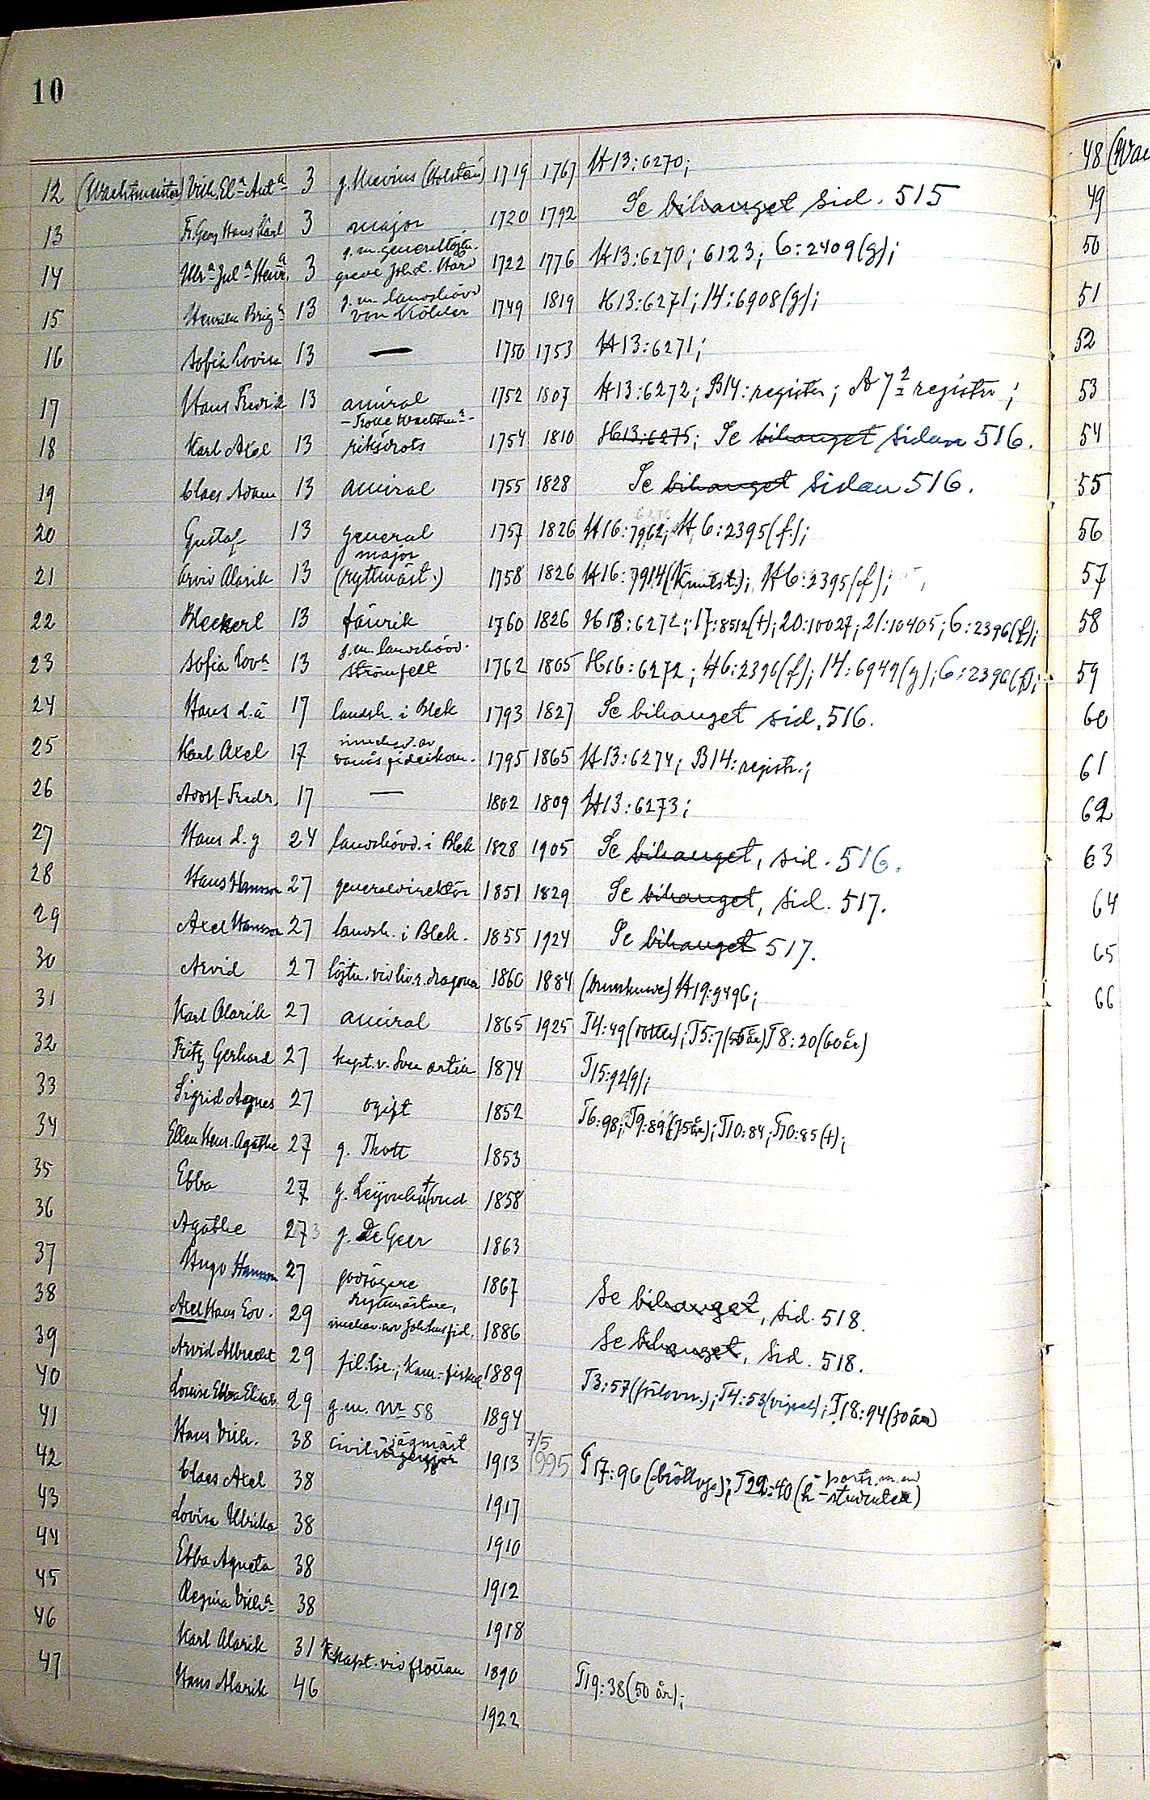 10
12 (Wachtmeister) Vilh. El:a Ant:a 3 g. Mevius (Holstein) 1719 1767 H13:6270;
13 Fr. Georg Hans Karl 3 major 1720 1792 Se bihanget sid. 515
14 Ulr:a Jul:a Henr:a 3 g. m. generallöjtn. greve Joh. L. Hård 1722 1776 H13:6270; 6123; 6:2409(g);
15 Henrika Brig:a 13 g. m. landshövd von Köhler 1749 1819 H13:6271; 14:6908(g);
16 Sofia Lovisa 13 — 1750 1753 H13:6271;
17 Hans Fredrik 13 amiral 1752 1807 H13:6272; B14: register; A 7 2 register;
18 Karl Axel 13 -Trolle Wachtm:r- riksdrots 1754 1810 H13:6275; Se bihanget sidan 516.
19 Claes Adam 13 amiral 1755 1828 Se bihanget sidan 516.
20 Gustaf 13 general 1757 1826 H16:7962; H6:2395(f);
21 Arvid Alarik 13 major (ryttmäst.) 1758 1826 H16:7914(Knutst.); H6:2395(f);
22 Bleckert 13 fänrik 1760 1826 H13:6272; 17:8512(t); 20:10027; 21:10405; 6:2396(f);
23 Sofia Lov:a 13 g. m. landshövd. Strömfelt 1762 1805 H16:6272; H6:2396(f); 14:6949(g); 6:2396(f);
24 Hans d. ä 17 landsh. i Blek 1793 1827 Se bihanget sid. 516.
25 Karl Axel 17 innehav. av vanås fideikom. 1795 1865 H13:6274; B14: registr.;
26 Adolf Fredr. 17 — 1802 1809 H13:6273;
27 Hans d. y 24 landshövd. i Blek 1828 1905 Se bihanget, sid. 516.
28 Hans Hansson 27 generaldirektör 1851 1829 Se bihanget, sid. 517.
29 Axel Hansson 27 landsh. i Blek. 1855 1924 Se bihanget 517.
30 Arvid 27 löjtn. vid liv.r. dragoner 1860 1884 (drunknade) H19:9496;
31 Karl Alarik 27 amiral 1865 1925 T4:49(); T5:7(55 år) T8:20(60 år)
32 Fritz Gerhard 27 kapt. v. Svea artill 1874 T15:92(g);
33 Sigrid Agnes 27 ogift 1852 T6:98; T9:89(75 år); T10:84; T10:85(t);
34 Ellen Henr. Agathe 27 g. Thott 1853
35 Ebba 27 g. Leijonhufvud 1858
36 Agathe 27 3 g. De Geer 1863
37 Hugo Hansson 27 godsägare 1867 Se bihanget, sid. 518.
38 Axel Hans Edv. 29 Ryttmästare, innehav. av Johannisfid. 1886 Se bihanget, sid. 518.
39 Arvid Albrecht 29 fil. lic.; Kam.-fiskal 1889 T3:57(förlovn.); T4:53(vigsel); T18:94(50 åra)
40 Louise Ebba Elisab. 29 g. m. Nr 58 1894
41 Hans Vilh. 38 civil jägmäst 1913 7/5 1995 T17:96(bröllops); T22:40(h - portr. m. en - studente)
42 Claes Axel 38 1917
43 Lovisa Ulrika 38 1910
44 Ebba Agneta 38 1912
45 Regina Vilh:a 38 1918
46 Karl Alarik 31 K.kapt. vid flottan 1890 T19:38(50 år);
47 Hans Alarik 46 1922
48 (Wac
49
50
51
52
53
54
55
56
57
58
59
60
61
62
63
64
65
66